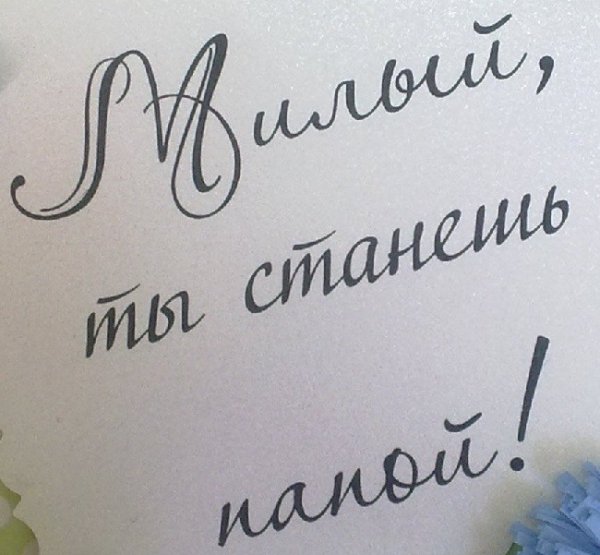 Милый,
ты станешь
папой!